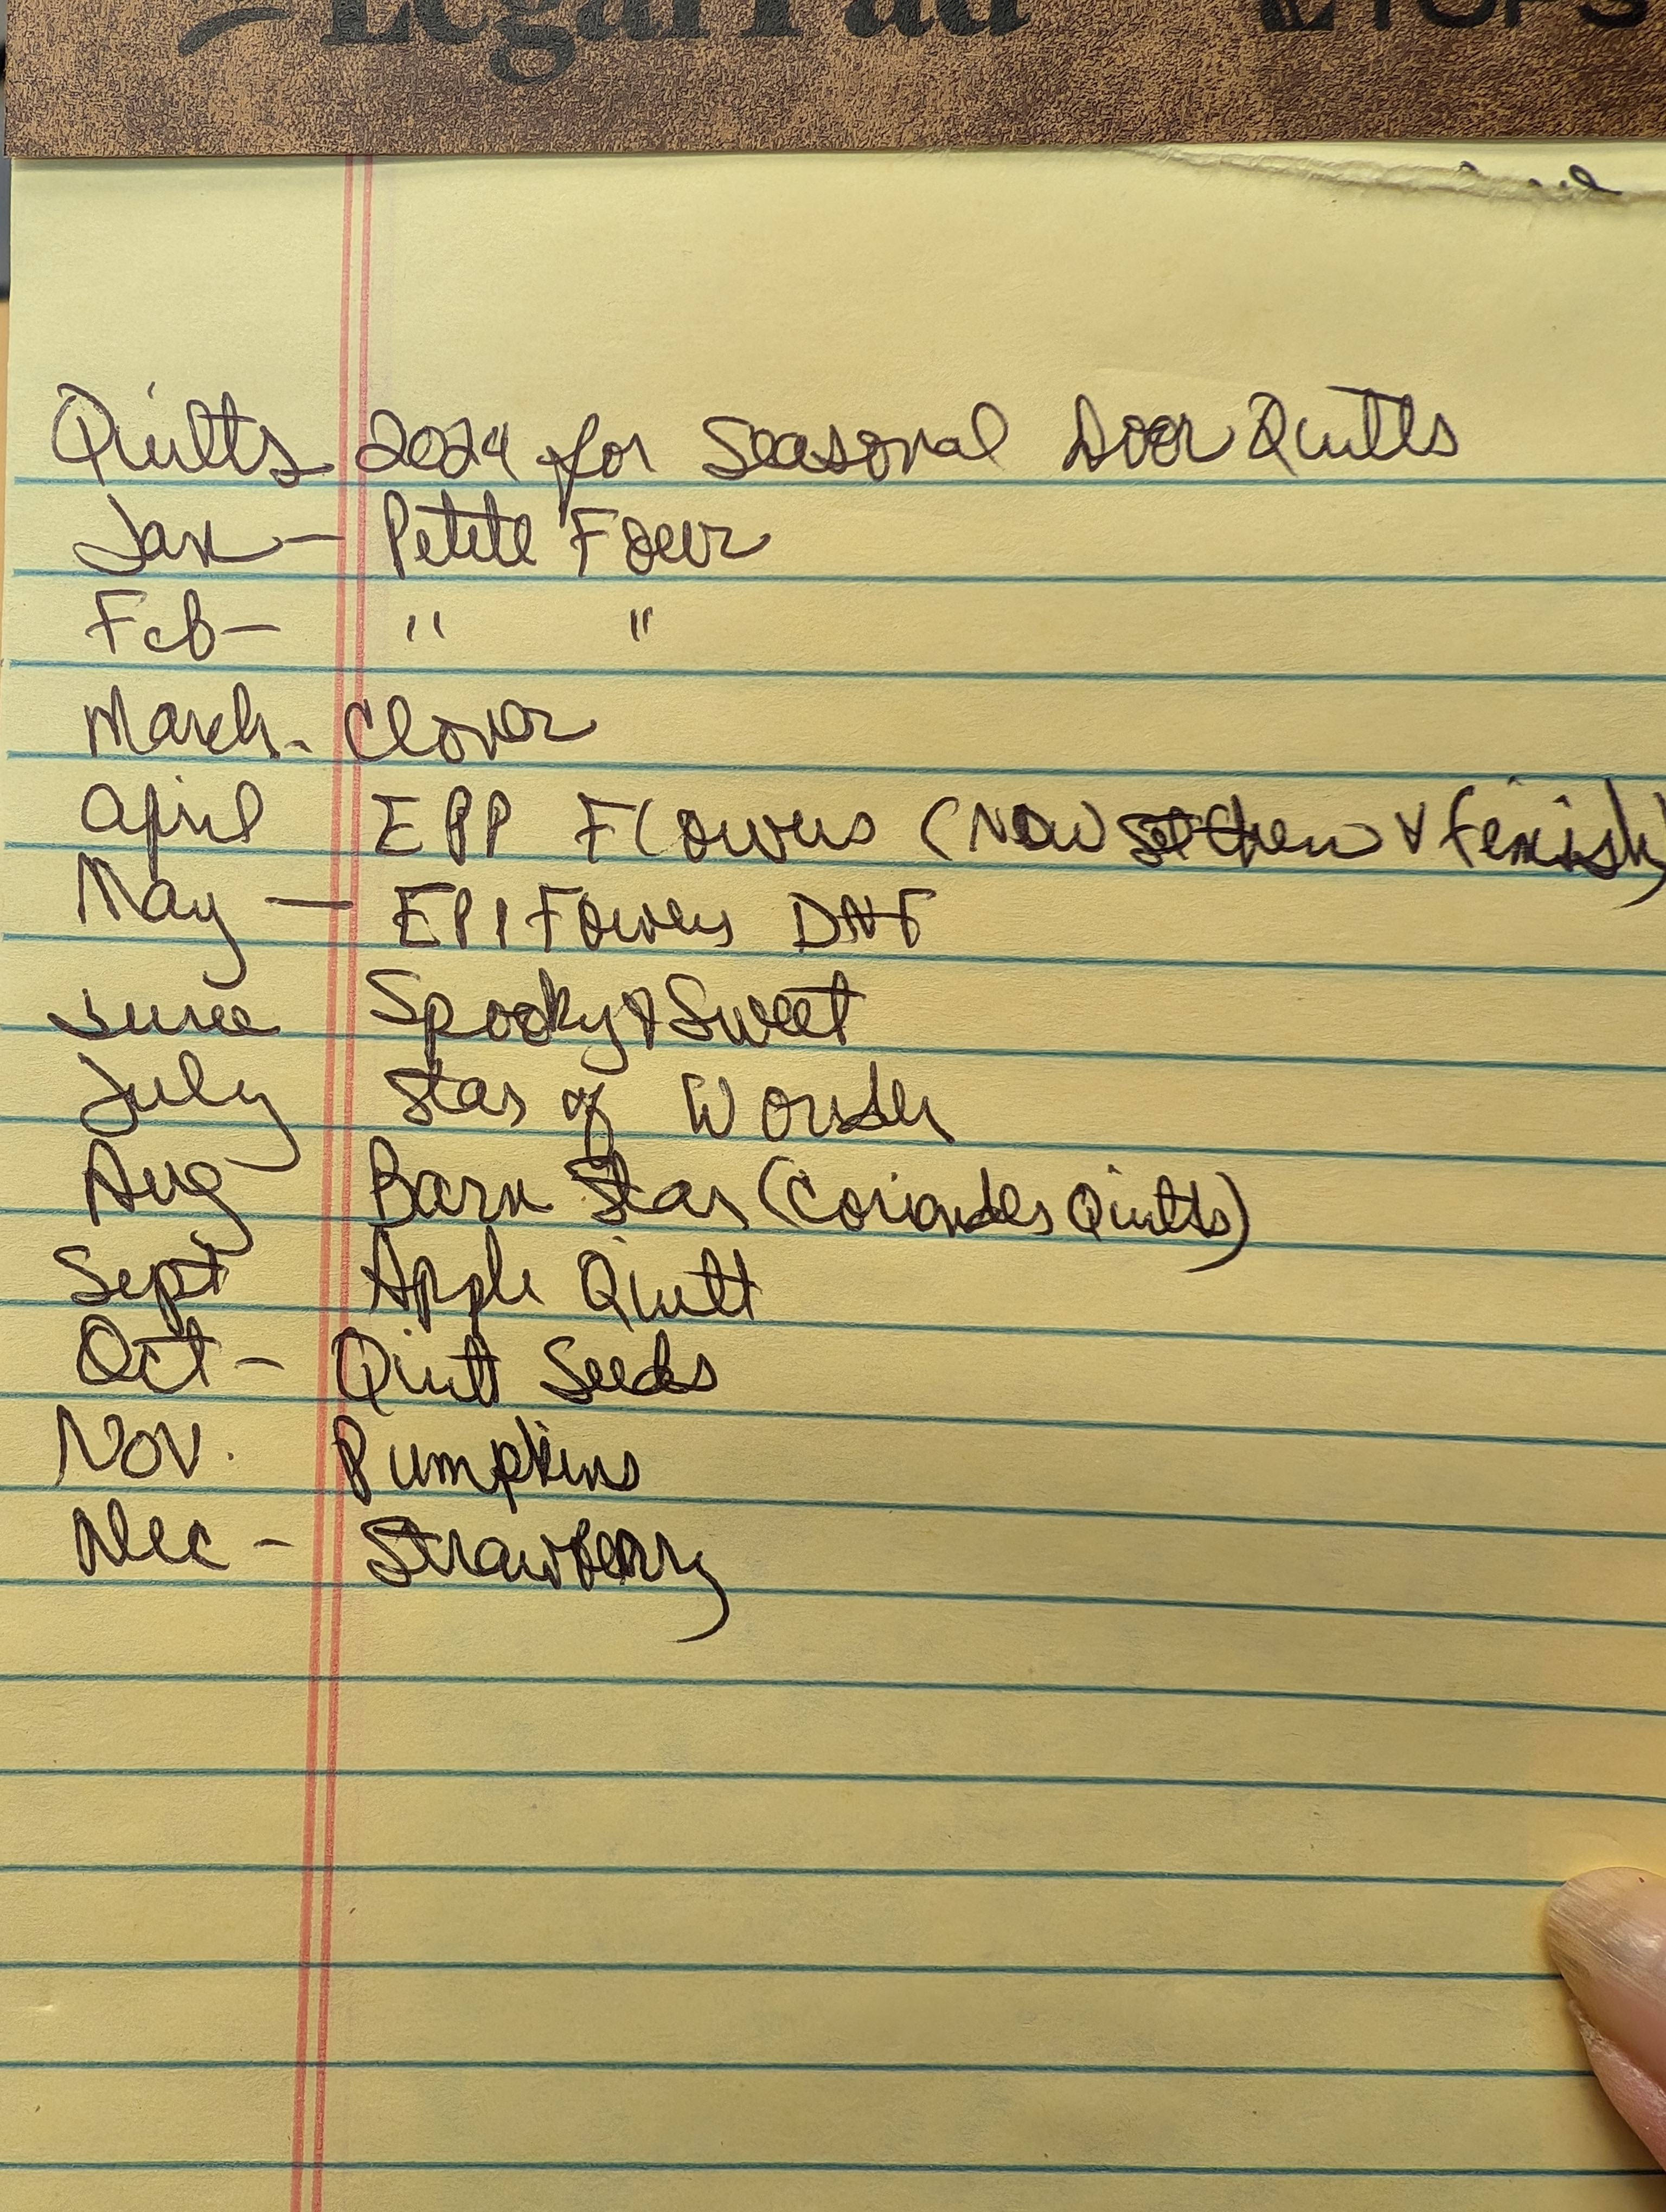 Legal Pad TOPS
Quilts 2024 for Seasonal Door Quilts
Jan - Petite Four
Feb - " "
March - Clover
April EPP Flowers (Now set them & finish)
May - EPP Flowers DNF
June Spooky & Sweet
July Star of Wonder
Aug Barn Star (Coriander Quilts)
Sept Apple Quilt
Oct - Quilt Seeds
Nov. Pumpkins
Dec - Strawberry